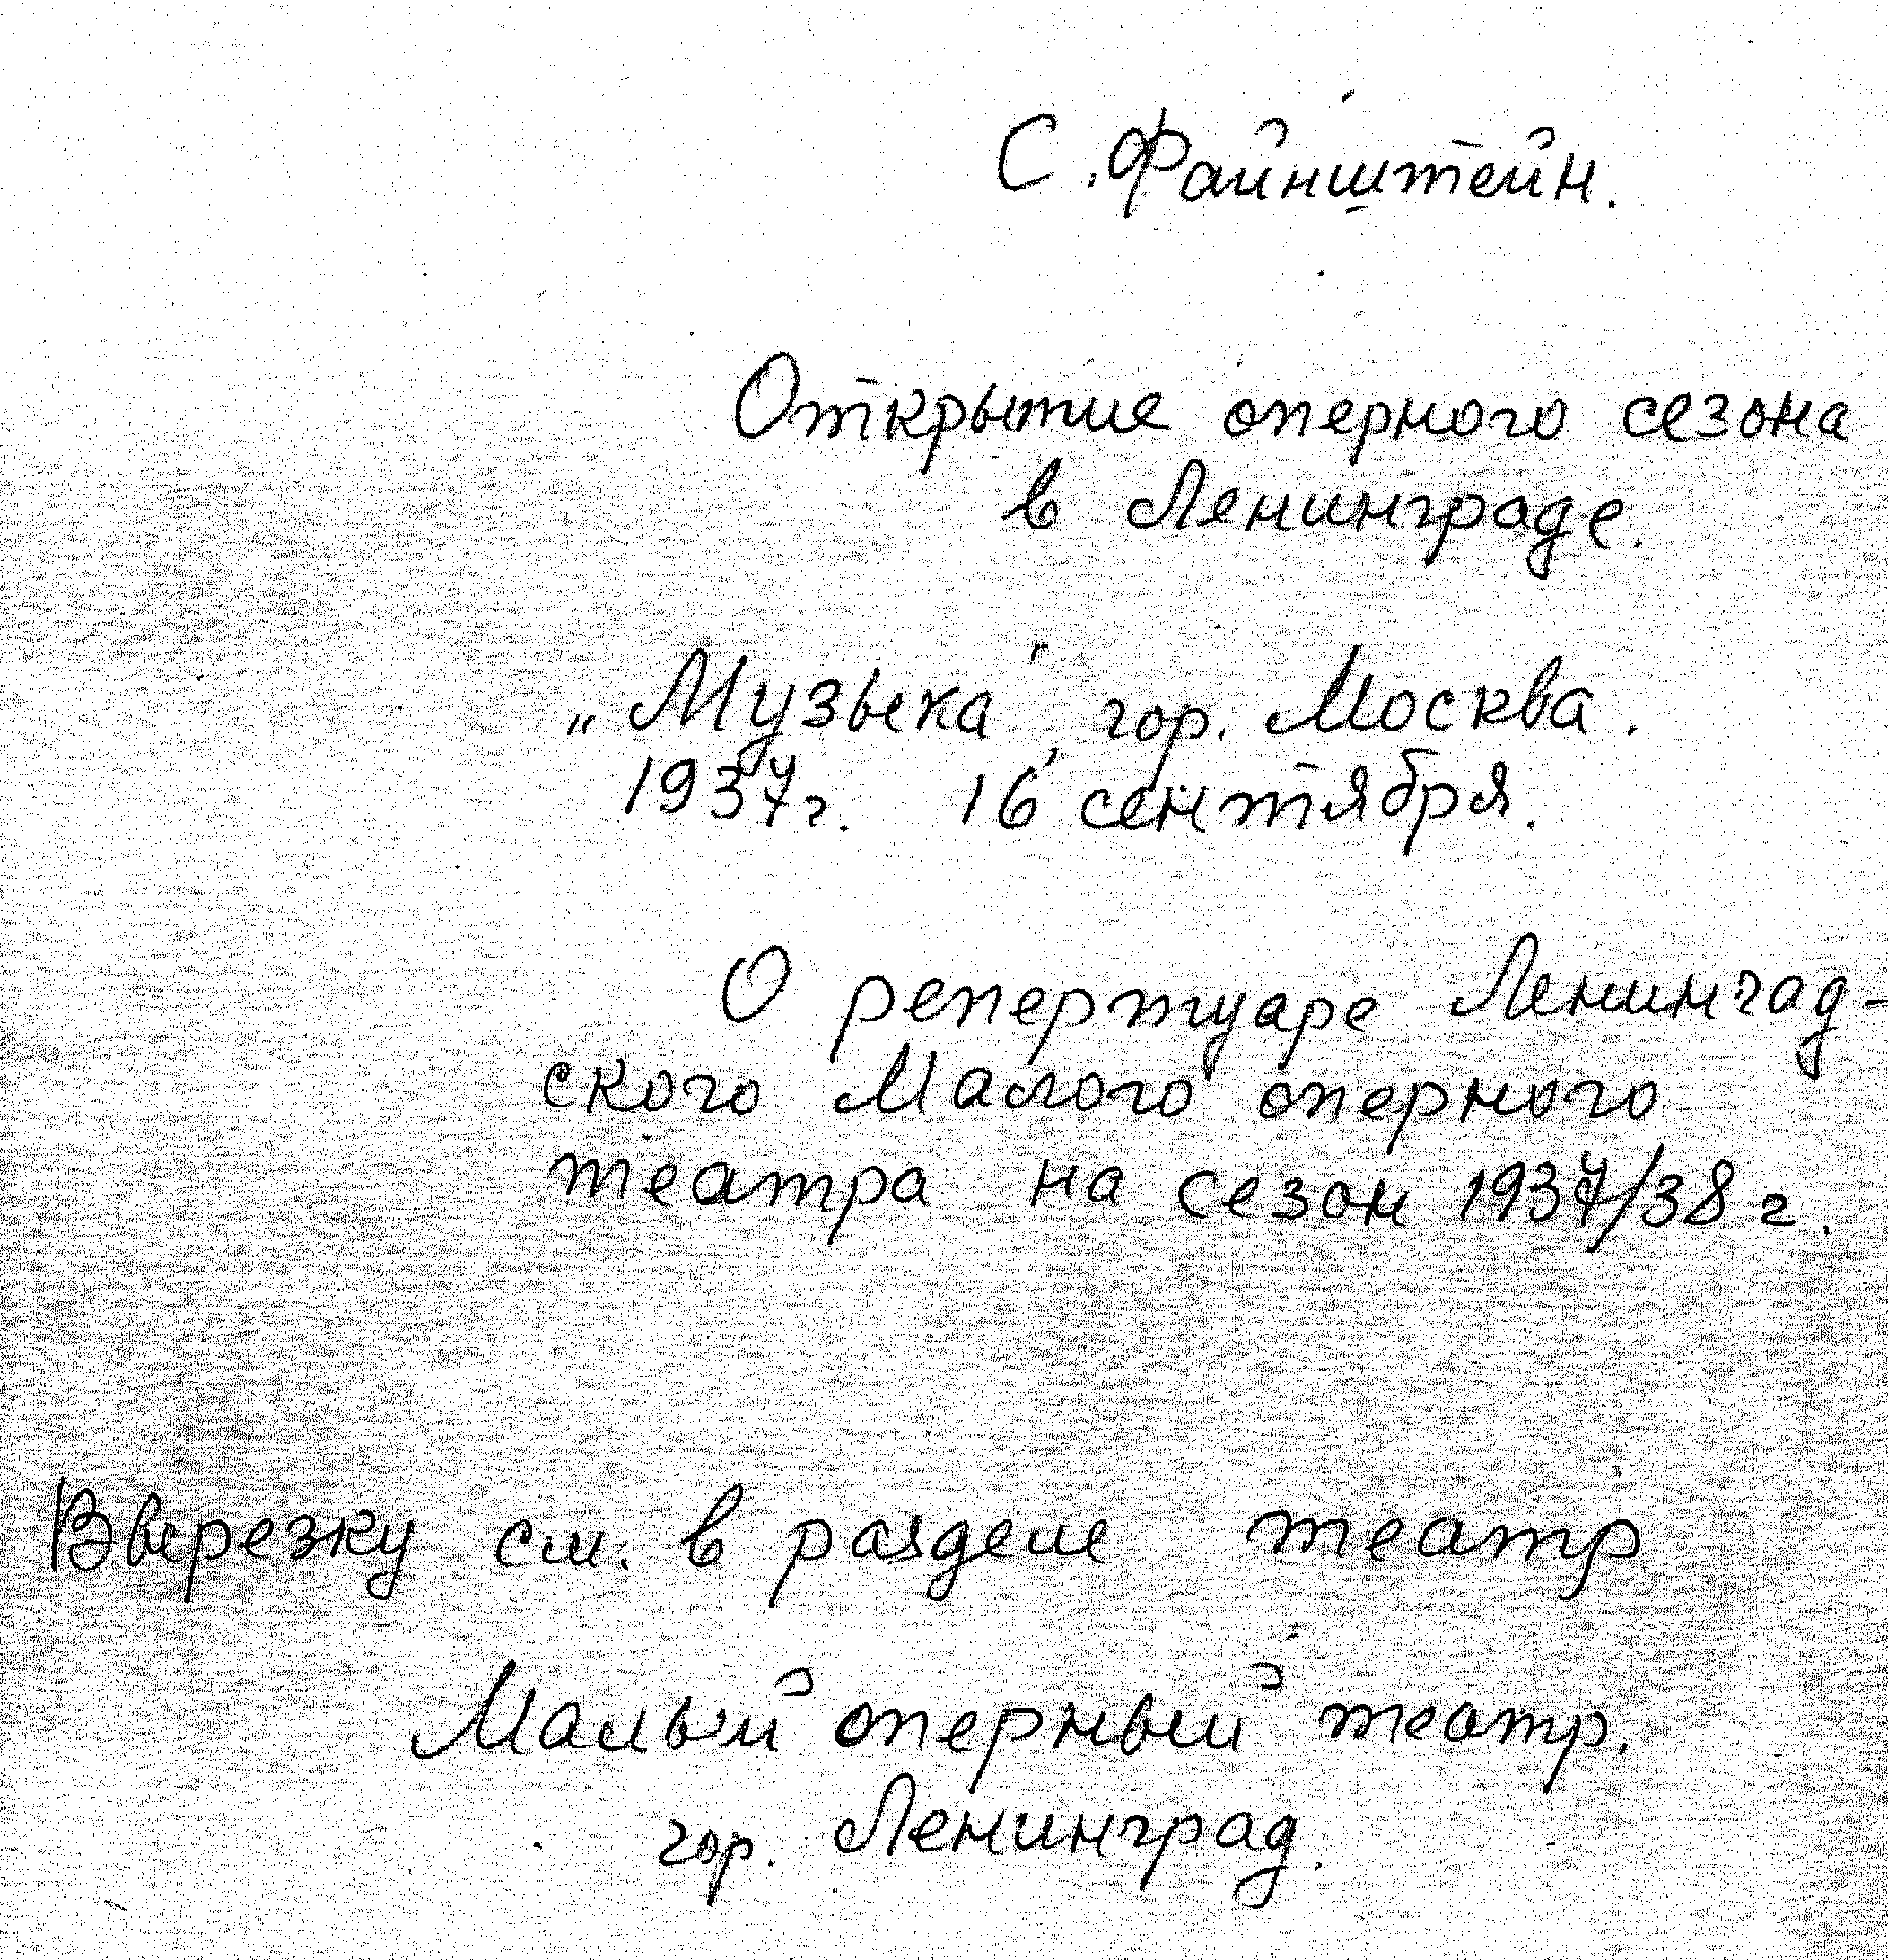 С. Файнштейн.
Открытие оперного сезона
в Ленинграде.
„Музыка", гор. Москва.
1937г. 16 сентября.
О репертуаре Ленингад-
ского Малого оперного
театра на сезон 1937/38 г.
Вырезку см. в разделе театр
Малый оперный театр.
гор. Ленинград.